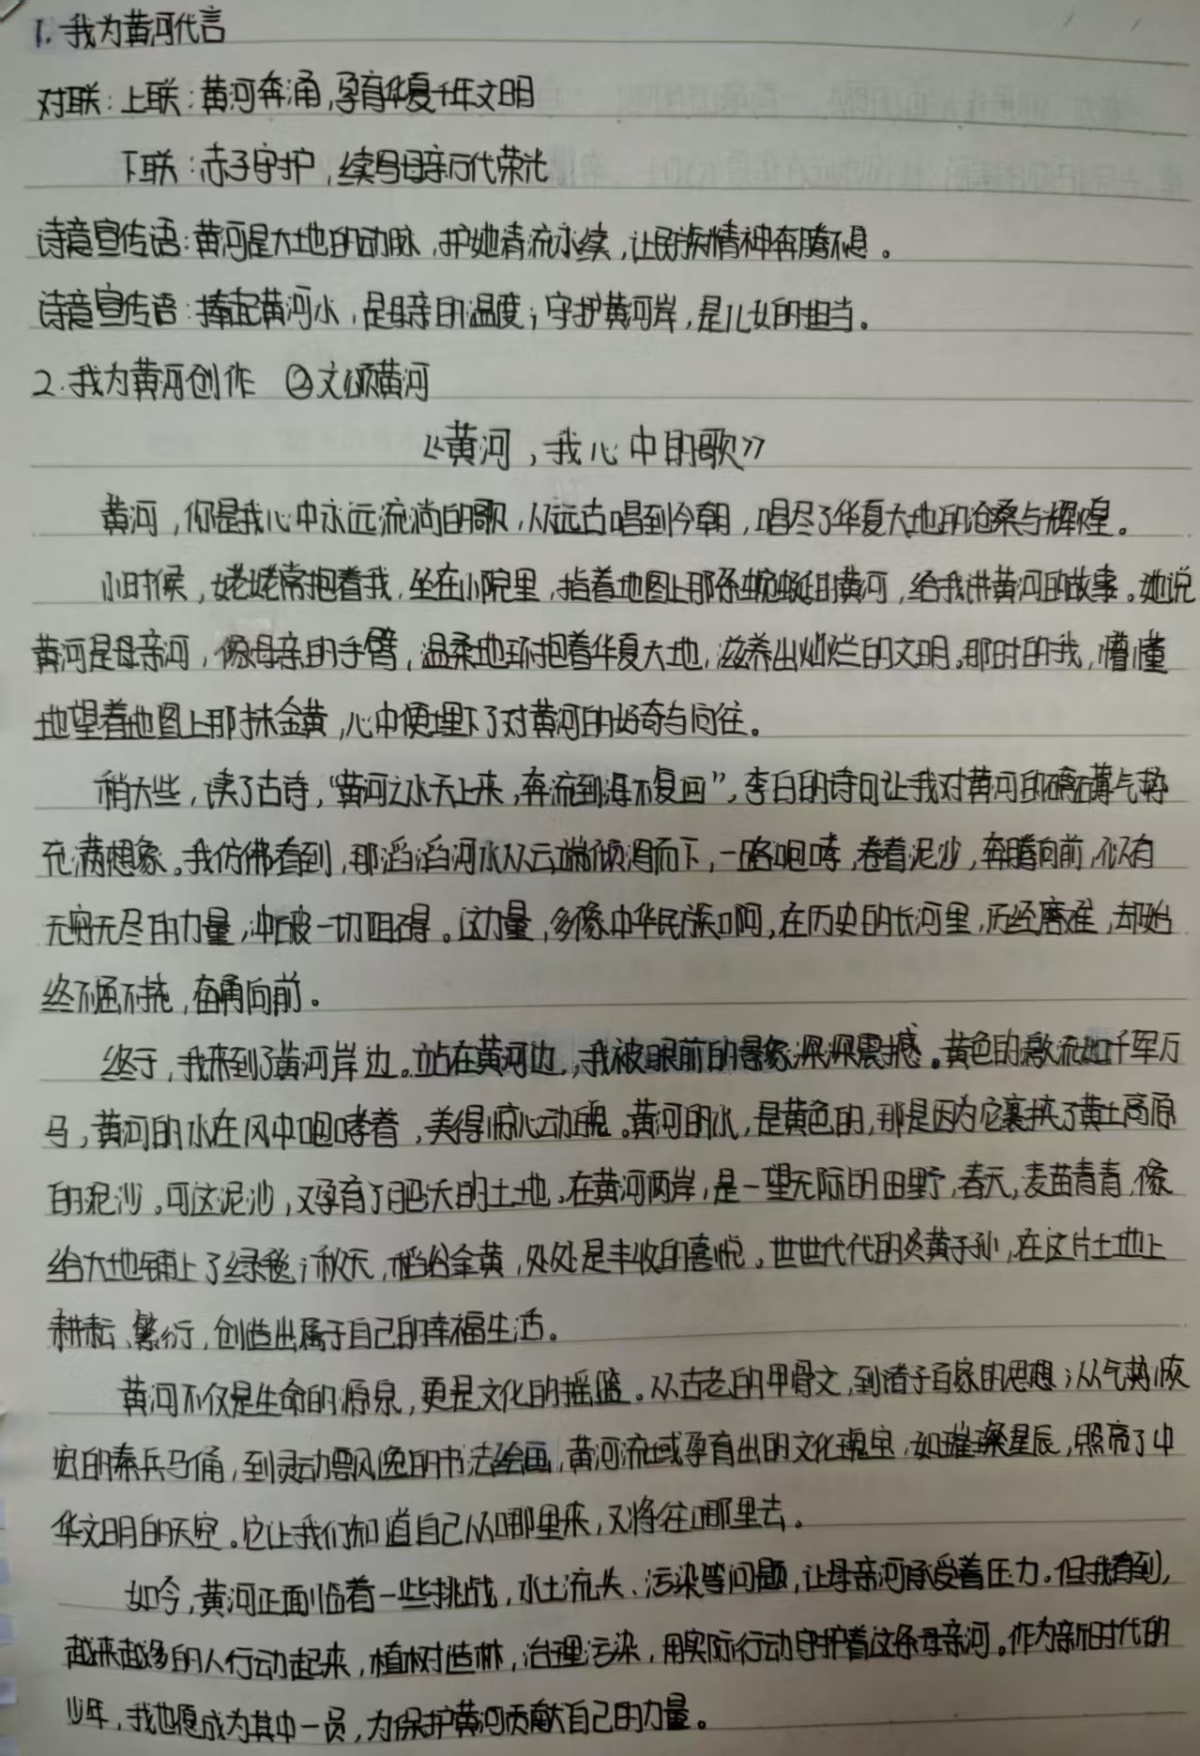 1. 我为黄河代言
对联：上联：黄河奔涌，孕育华夏千年文明
下联：赤子守护，续写母亲万代荣光
诗意宣传语：黄河是大地的动脉，护她清流永续，让民族精神奔腾不息。
诗意宣传语：捧起黄河水，是母亲的温度；守护黄河岸，是儿女的担当。
2.我为黄河创作 ②文颂黄河
《黄河，我心中的歌》
黄河，你是我心中永远流淌的歌，从远古唱到今朝，唱尽了华夏大地的沧桑与辉煌。
小时候，姥姥常抱着我，坐在小院里，指着地图上那条蜿蜒的黄河，给我讲黄河的故事。她说
黄河是母亲河，像母亲的手臂，温柔地环抱着华夏大地，滋养出灿烂的文明。那时的我，懵懂
地望着地图上那抹金黄，心中便埋下了对黄河的好奇与向往。
稍大些，读了古诗，“黄河之水天上来，奔流到海不复回”，李白的诗句让我对黄河的磅礴气势
充满想象。我仿佛看到，那滔滔河水从云端倾泻而下，一路咆哮，卷着泥沙，奔腾向前，似有
无穷无尽的力量，冲破一切阻碍。这力量，多像中华民族啊，在历史的长河里，历经磨难，却始
终不屈不挠，奋勇向前。
终于，我来到了黄河岸边。站在黄河边，我被眼前的景象深深震撼。黄色的激流如千军万
马，黄河的水在风中咆哮着，美得惊心动魄。黄河的水，是黄色的，那是因为它裹挟了黄土高原
的泥沙。可这泥沙，又孕育了肥沃的土地。在黄河两岸，是一望无际的田野，春天，麦苗青青，像
给大地铺上了绿毯；秋天，稻谷金黄，处处是丰收的喜悦。世世代代的炎黄子孙，在这片土地上
耕耘、繁衍，创造出属于自己的幸福生活。
黄河不仅是生命的源泉，更是文化的摇篮。从古老的甲骨文，到诸子百家的思想；从气势恢
宏的秦兵马俑，到灵动飘逸的书法绘画，黄河流域孕育出的文化瑰宝，如璀璨星辰，照亮了中
华文明的天空。它让我们知道自己从哪里来，又将往哪里去。
如今，黄河正面临着一些挑战，水土流失、污染等问题，让母亲河承受着压力。但我看到，
越来越多的人行动起来，植树造林，治理污染，用实际行动守护着这条母亲河。作为新时代的
少年，我也愿成为其中一员，为保护黄河贡献自己的力量。